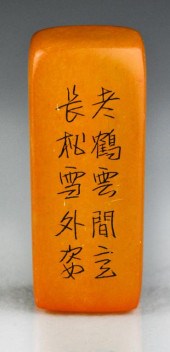 老鶴雲間意
長松雪外姿